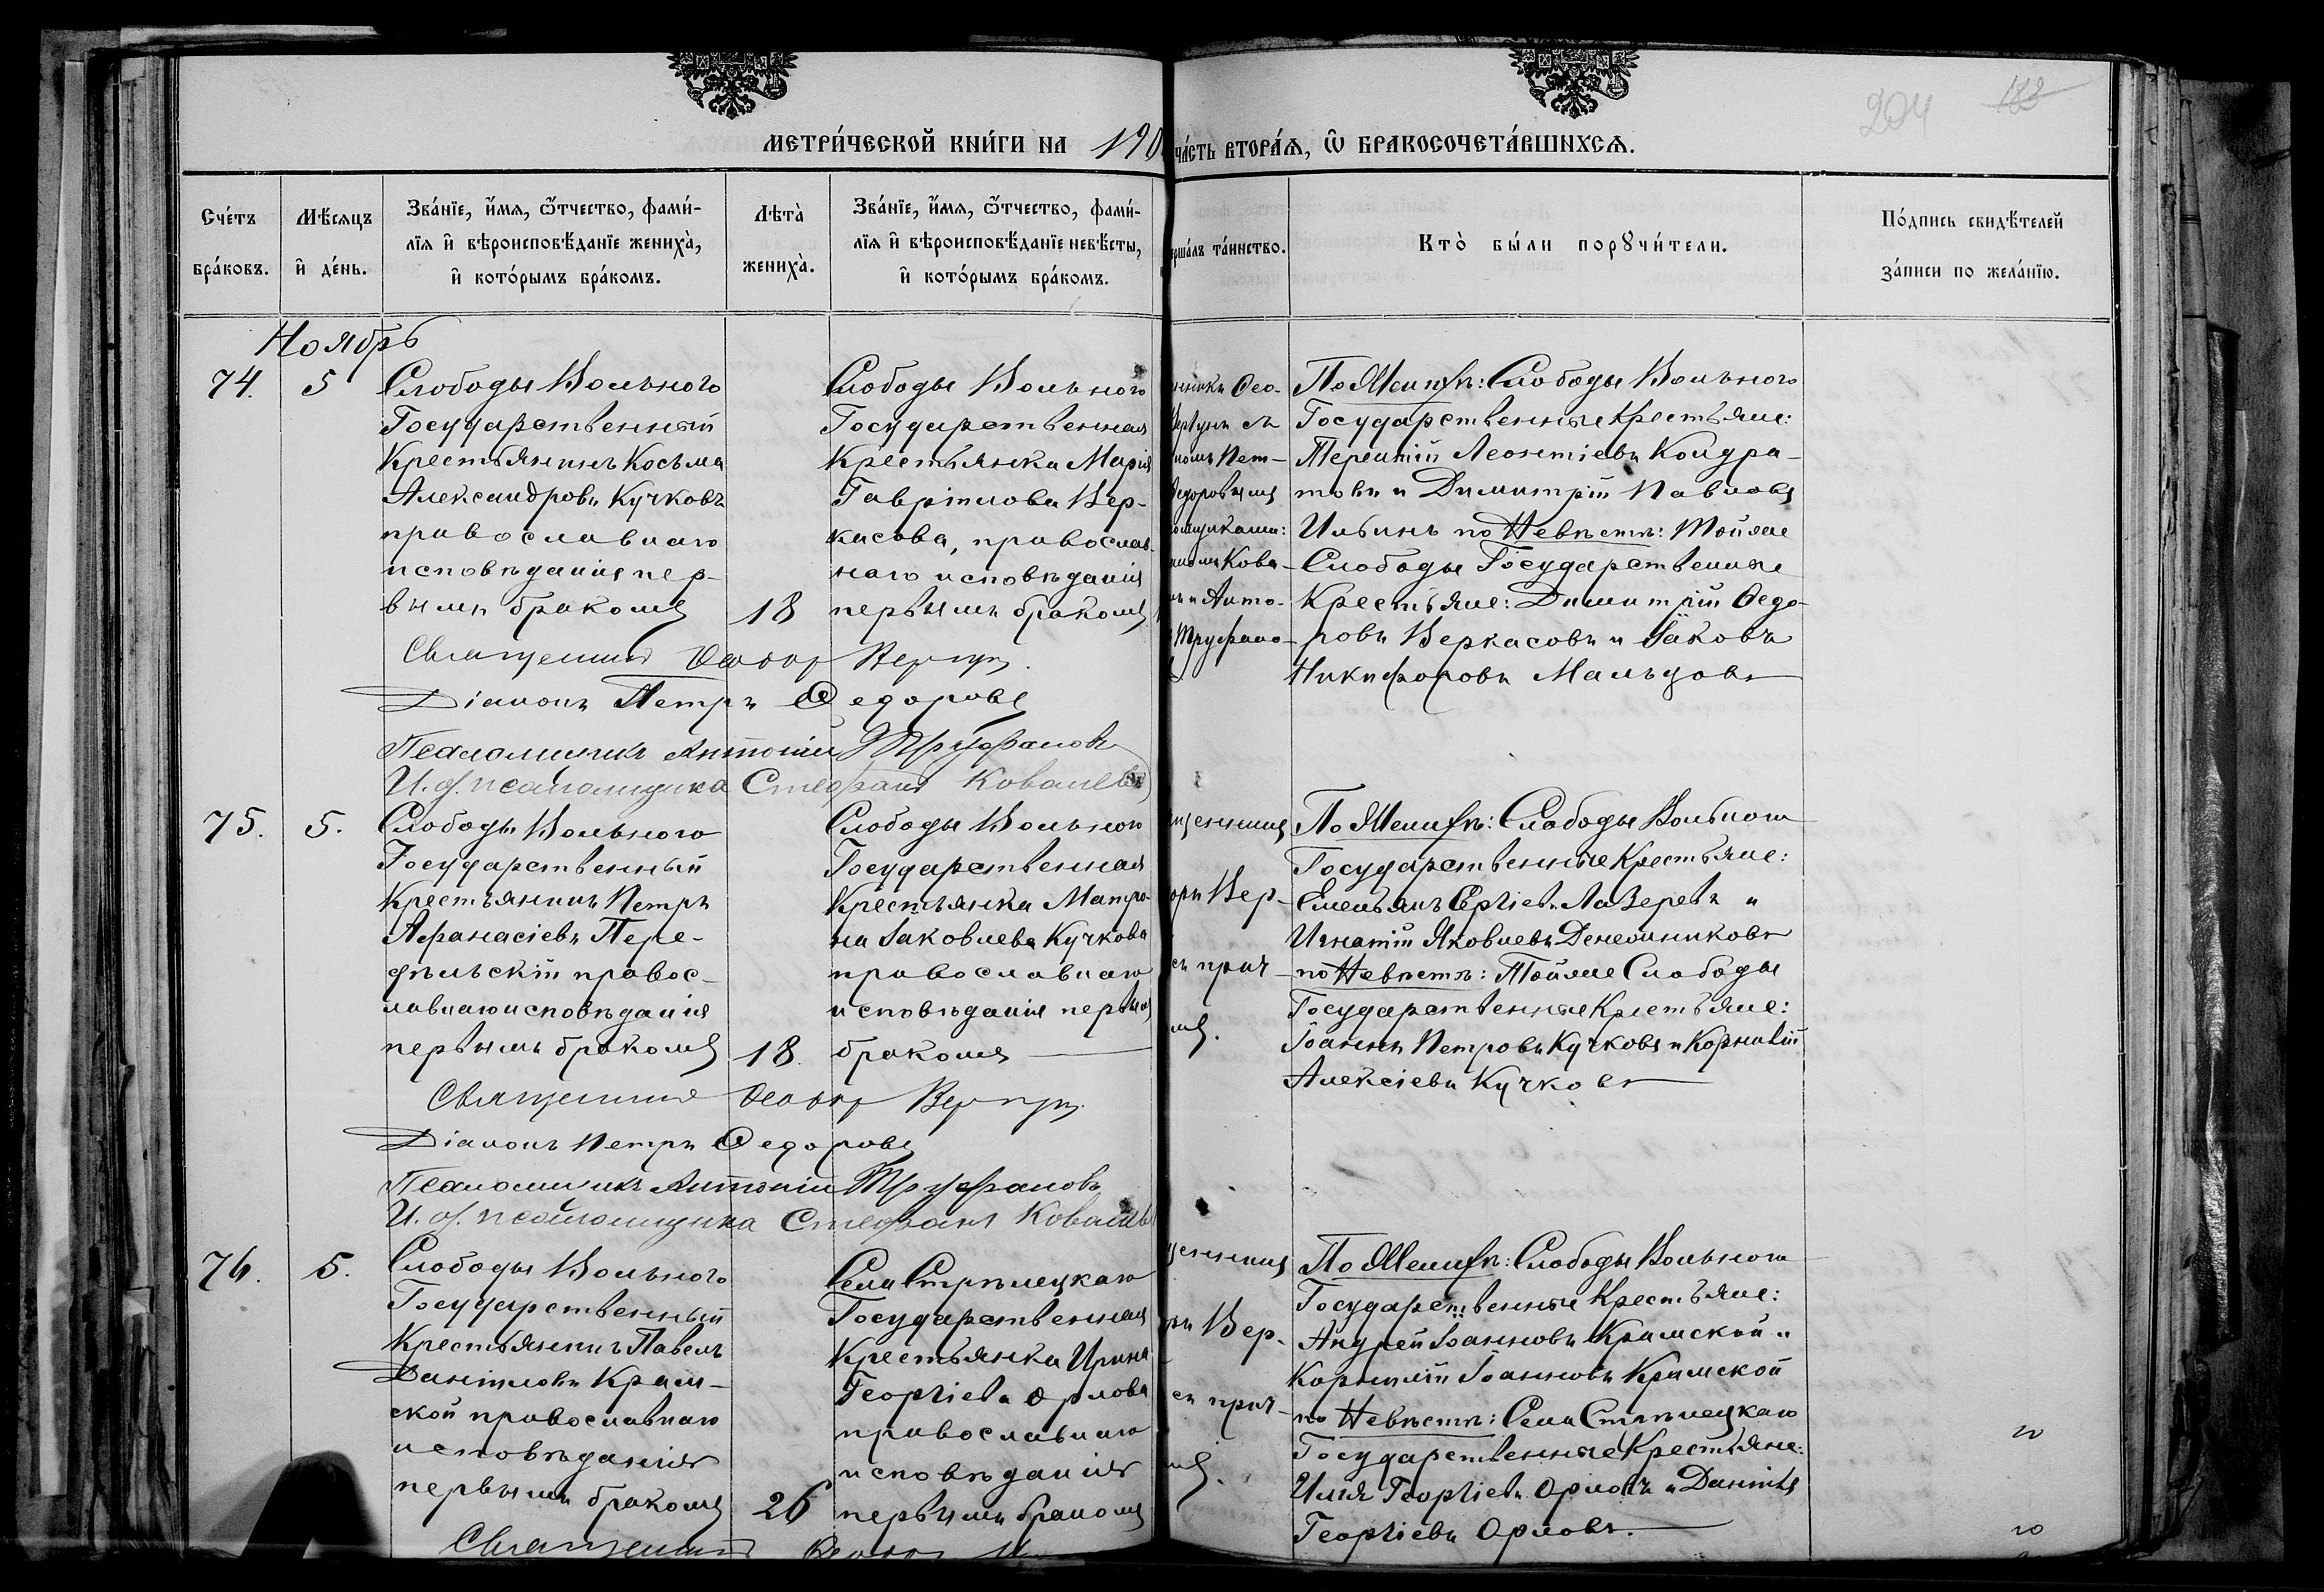 204 188
МЕТРИ́ЧЕСКОЙ КНИ́ГИ НА 190
ЧА́СТЬ ВТОРА́Ѧ, Ѡ҆ БРАКОСОЧЕТА́ВШИХСѦ.
Сче́тъ бра́ковъ.
Мѣ́сяцъ и҆ де́нь.
Зва́нїе, и҆́мѧ, ѻ҆́тчество, фами́-
лїѧ и҆ вѣроисповѣ́данїе жениха̀,
и҆ кото́рымъ бра́комъ.
Лѣта̀ жениха̀.
Зва́нїе, и҆́мѧ, ѻ҆́тчество, фами́-
лїѧ и҆ вѣроисповѣ́данїе невѣ́сты,
и҆ кото́рымъ бра́комъ.
ерша́лъ та́инство.
Кто̀ бы́ли порꙋчи́тели.
По́дпись свидѣ́телей
за́писи по жела́нїю.
Ноябрь
74. 5
Слободы Вольного
Государственный
Крестьянинъ Косьма
Александровъ Кучковъ
православнаго
исповѣданія пер-
вымъ бракомъ
18
Слободы Вольного
Государственная
Крестьянка Марія
Гавріилова Вер-
касова, православ-
наго исповѣданія
первымъ бракомъ
нникъ Ѳео-
Вергунъ съ
номъ Пет-
Ѳедоровымъ
омщиками:
Кова-
и Анто-
Труфано-
По Женихѣ: Слободы Вольного
Государственные Крестьяне:
Терентій Леонтіевъ Кондра-
товъ и Димитрій Павловъ
Ильинъ по Невѣстѣ: Той же
Слободы Государственные
Крестьяне: Димитрій Ѳедо-
ровъ Веркасовъ и Іаковъ
Никифоровъ Мальцовъ
Священникъ Ѳеодоръ Вергунъ.
Діаконъ Петръ Ѳедоровъ
Псаломщикъ Антоній Труфановъ
И. д. псаломщика Стефанъ Ковалевъ
75. 5.
Слободы Вольного
Государственный
Крестьянинъ Петръ
Афанасіевъ Пере-
дѣльскій правос-
лавнаго исповѣданія
первымъ бракомъ
18.
Слободы Вольного
Государственная
Крестьянка Матро-
на Іаковлева Кучкова
православнаго
исповѣданія первымъ
бракомъ
щенникъ
оръ Вер-
съ прич-
мъ.
По Женихѣ: Слободы Вольного
Государственные Крестьяне:
Емельянъ Сергіевъ Лазеревъ и
Игнатій Яковлевъ Денежниковъ
по Невѣстѣ: Той же Слободы
Государственные Крестьяне:
Іоаннъ Петровъ Кучковъ и Корнилій
Алексіевъ Кучковъ
Священникъ Ѳеодоръ Вергунъ.
Діаконъ Петръ Ѳедоровъ
Псаломщикъ Антоній Труфановъ
И. д. псаломщика Стефанъ Ковалевъ
76. 5.
Слободы Вольного
Государственный
Крестьянинъ Павелъ
Даніиловъ Крым-
ской православнаго
исповѣданія
первымъ бракомъ
26
Села Стрѣлецкаго
Государственная
Крестьянка Ирина
Георгіева Орлова
православнаго
исповѣданія
первымъ бракомъ
щенникъ
оръ Вер-
съ прич-
мъ.
По Женихѣ: Слободы Вольного
Государственные Крестьяне:
Андрей Іоанновъ Крымской и
Корнилій Іоанновъ Крымской
по Невѣстѣ: Села Стрѣлецкаго
Государственные Крестьяне:
Илія Георгіевъ Орловъ и Даніилъ
Георгіевъ Орловъ.
Священникъ Ѳеодоръ